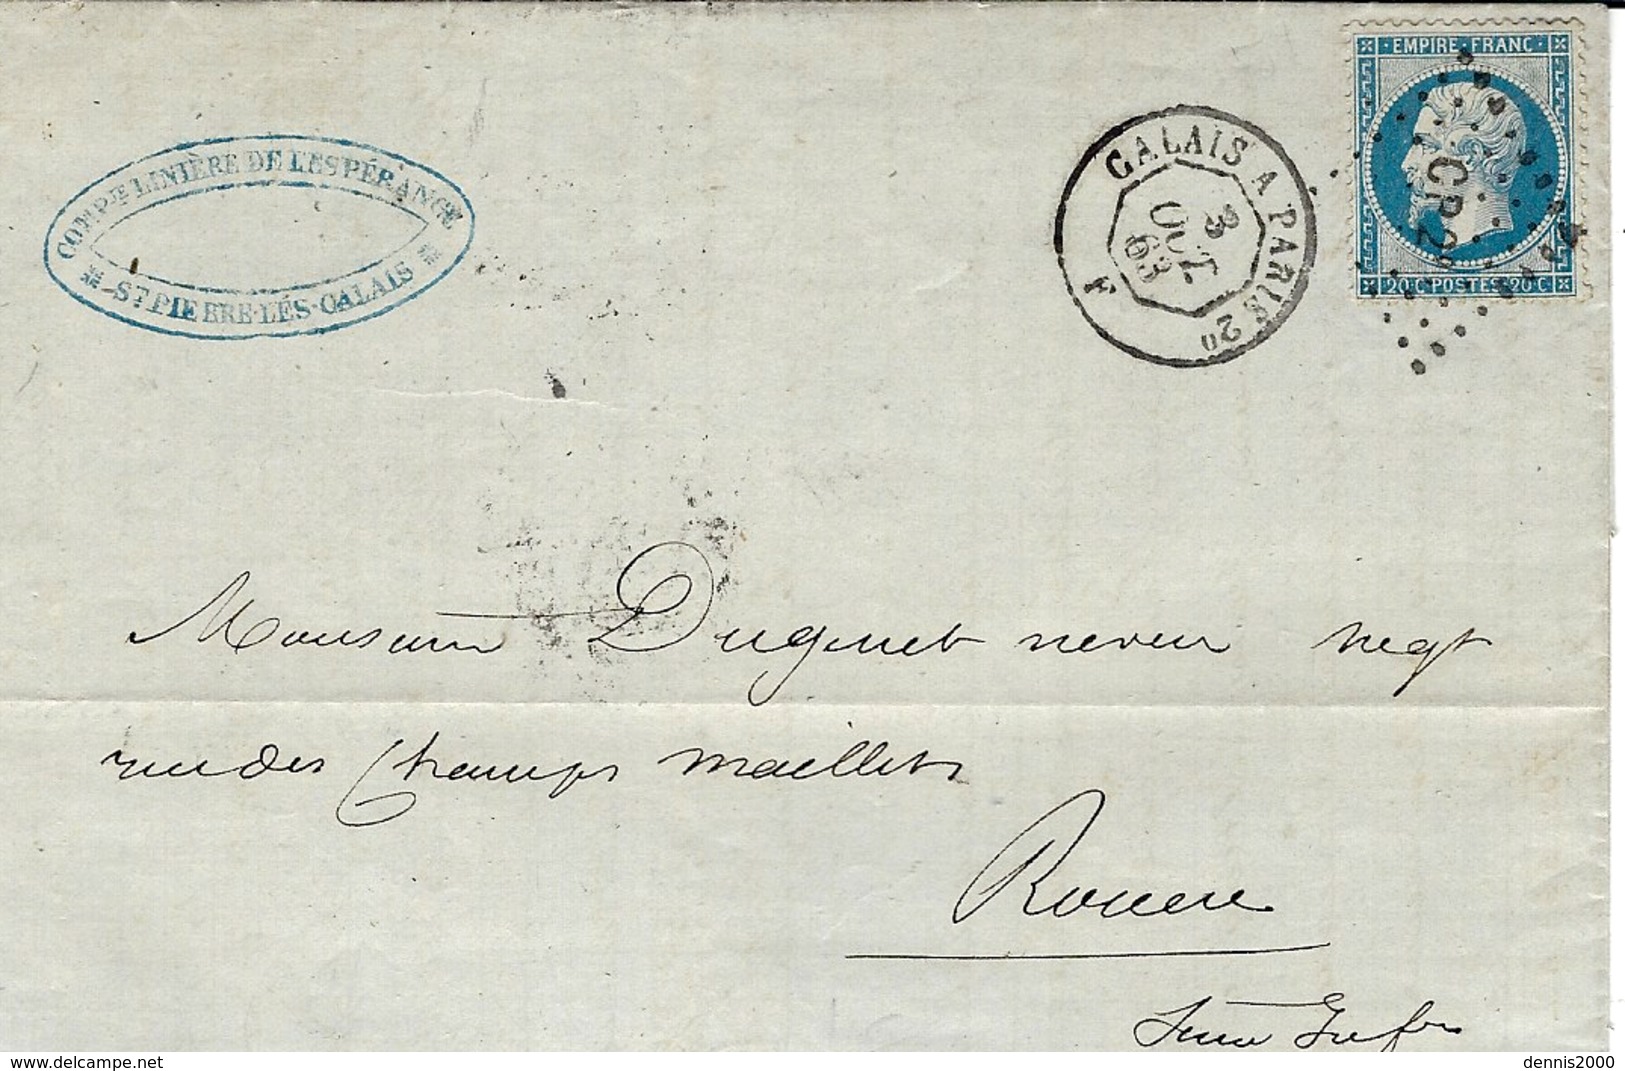 COMP^IE LINIÈRE DE L'ESPÉRANCE
ST PIERRE-LÈS-CALAIS
CALAIS A PARIS 2°
3
OCT
63
F
EMPIRE FRANC
CP2°
20 C POSTES 20 C
Monsieur Duginet neveu negt
rue des Champs maillets
Rouen
Seine Infre
dennis2000